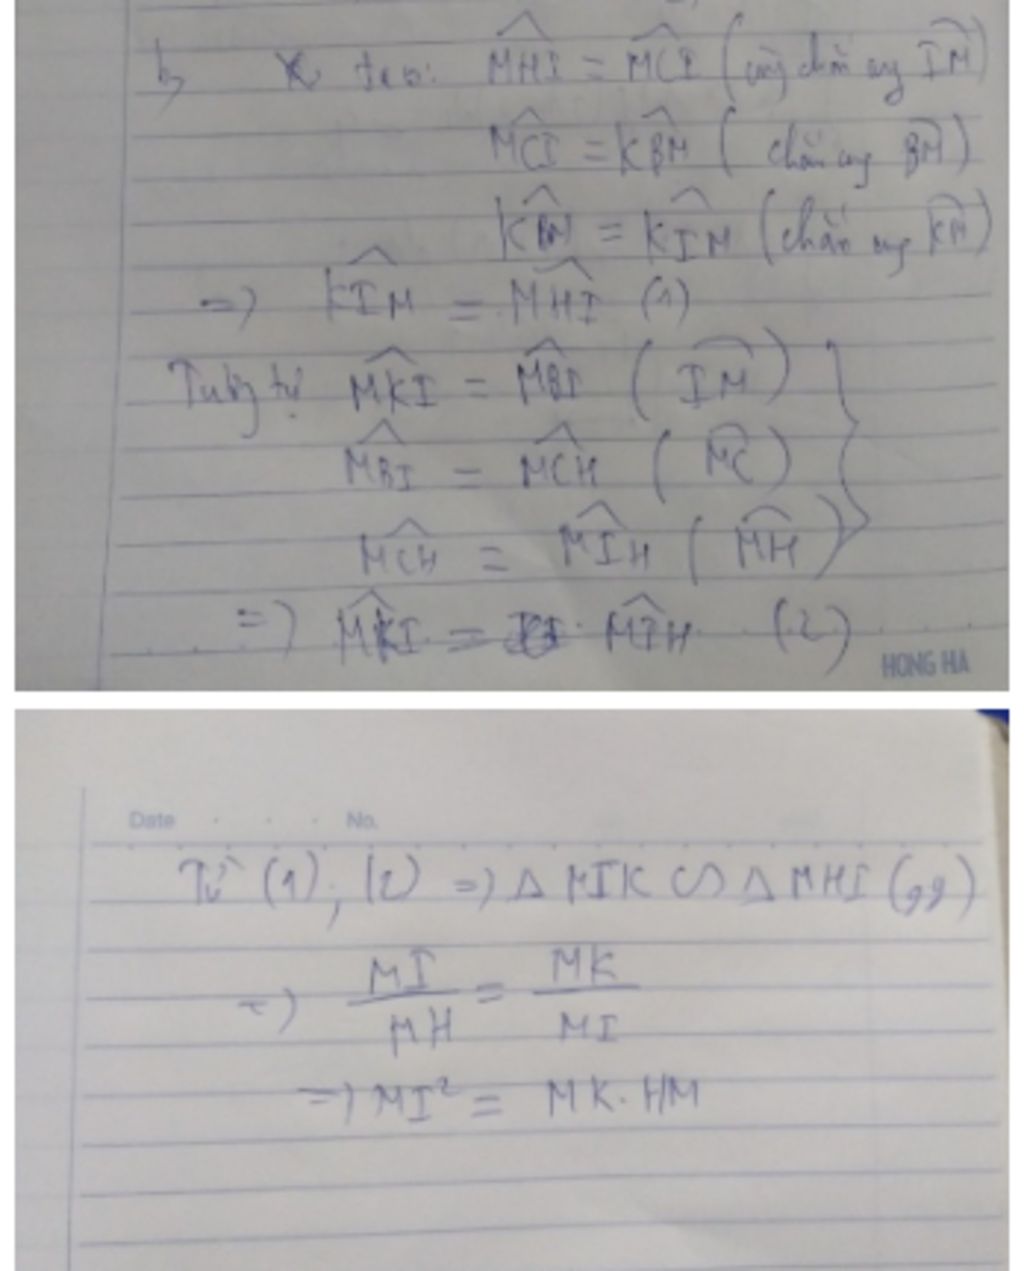 b, Ta có: \widehat{MHI} = \widehat{MCI} (cùng chắn cung \overparen{IM})
\widehat{MCI} = \widehat{KBM} ( chắn cung \overparen{BM})
\widehat{KBM} = \widehat{KIM} (chắn cung \overparen{KM})
=> \widehat{KIM} = \widehat{MHI} (1)
Tương tự \widehat{MKI} = \widehat{MBI} ( \overparen{IM} )
\widehat{MBI} = \widehat{MCH} ( \overparen{MC} )
\widehat{MCH} = \widehat{MIH} ( \overparen{MH} )
=> \widehat{MKI} = \widehat{MIH} (2)
HONG HA
Date . . . No.
Từ (1), (2) => Δ MIK ∽ Δ MHI (gg)
=> \frac{MI}{MH} = \frac{MK}{MI}
=> MI² = MK. HM